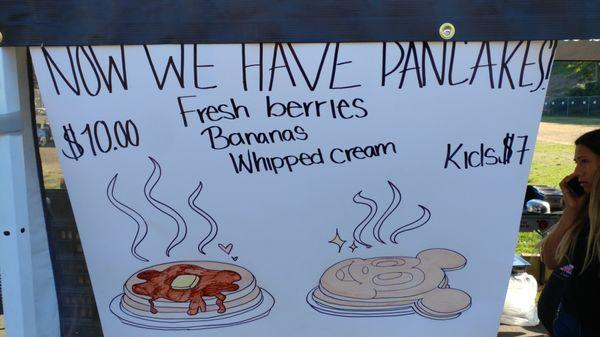 NOW WE HAVE PANCAKES!
Fresh berries
Bananas
Whipped cream
$10.00
Kids $7